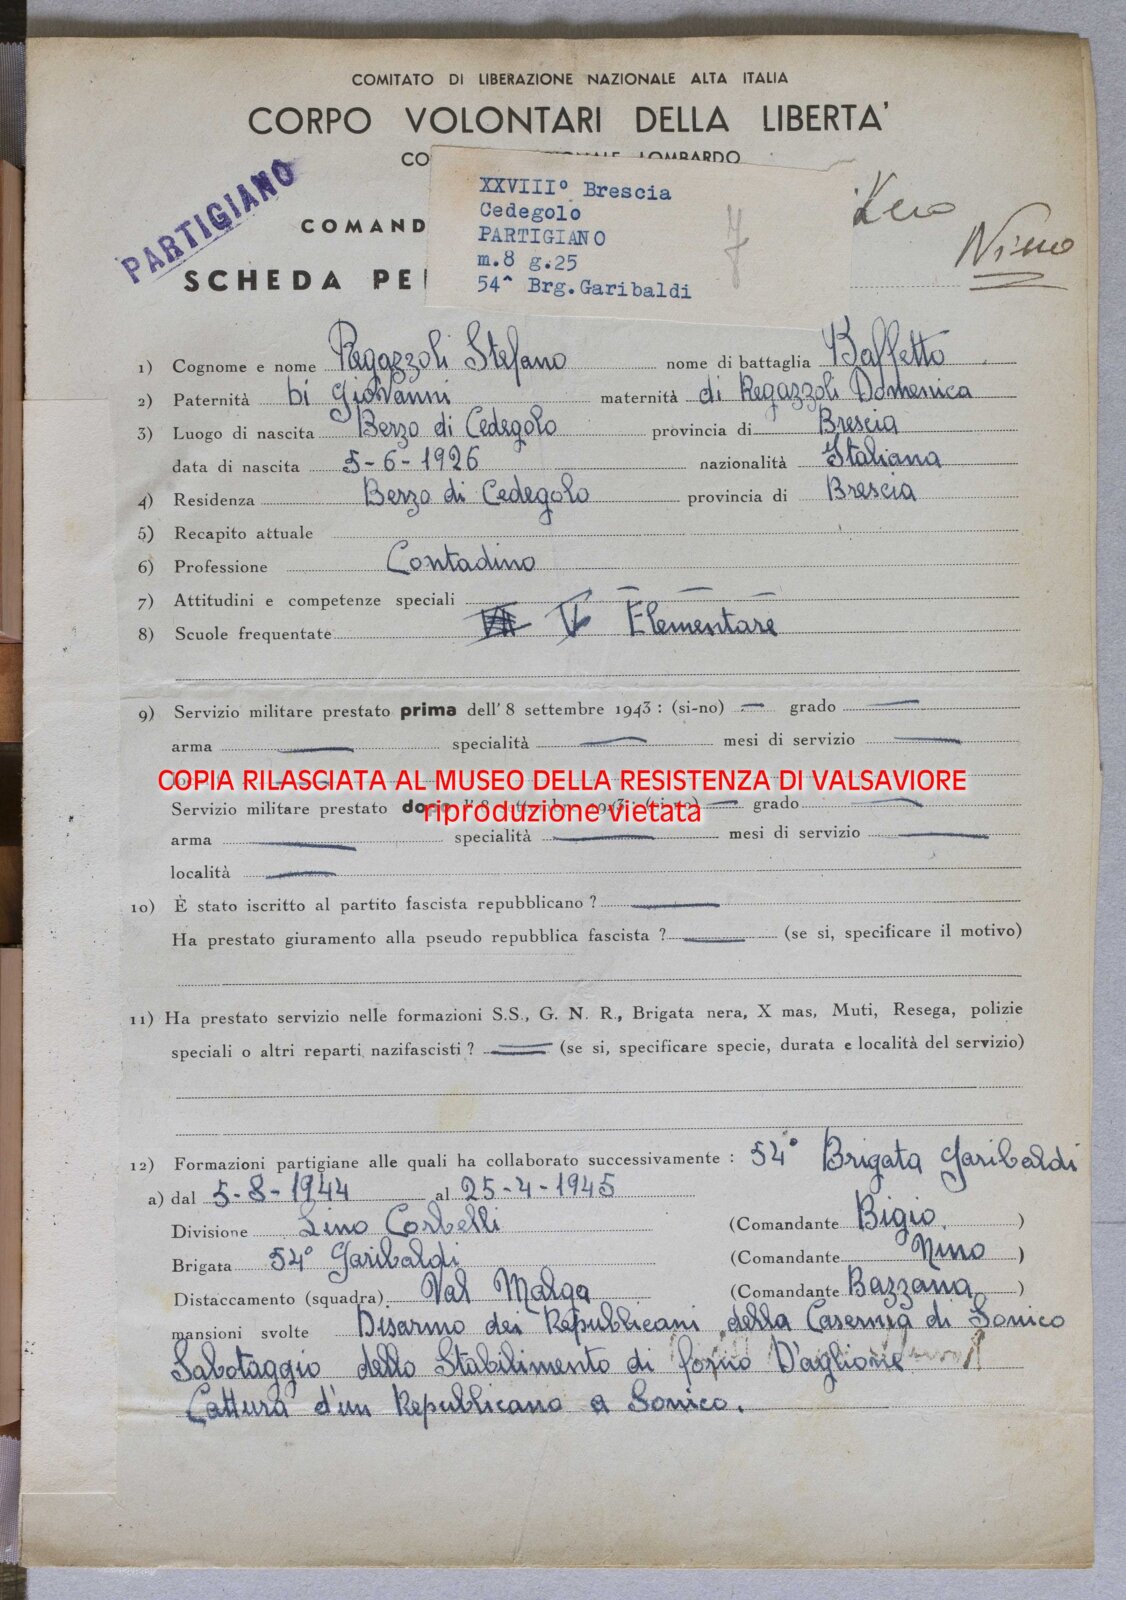 COMITATO DI LIBERAZIONE NAZIONALE ALTA ITALIA
CORPO VOLONTARI DELLA LIBERTA'
CO LOMBARDO
PARTIGIANO
COMAND
SCHEDA PE
XXVIII° Brescia
Cedegolo
PARTIGIANO
m.8 g.25
54^ Brg.Garibaldi
7
Nino
1) Cognome e nome Ragazzoli Stefano nome di battaglia Baffetto
2) Paternità bi Giovanni maternità di Regazzoli Domenica
3) Luogo di nascita Berzo di Cedegolo provincia di Brescia
data di nascita 5-6-1926 nazionalità Italiana
4) Residenza Berzo di Cedegolo provincia di Brescia
5) Recapito attuale
6) Professione Contadino
7) Attitudini e competenze speciali
8) Scuole frequentate V Elementare
9) Servizio militare prestato prima dell' 8 settembre 1943 : (si-no) — grado —
arma — specialità — mesi di servizio —
COPIA RILASCIATA AL MUSEO DELLA RESISTENZA DI VALSAVIORE
Servizio militare prestato dopo l' 8 settembre 1943 : (si-no) — grado —
riproduzione vietata
arma — specialità — mesi di servizio —
località —
10) È stato iscritto al partito fascista repubblicano ? —
Ha prestato giuramento alla pseudo repubblica fascista ? — (se si, specificare il motivo)
11) Ha prestato servizio nelle formazioni S.S., G. N. R., Brigata nera, X mas, Muti, Resega, polizie
speciali o altri reparti nazifascisti ? — (se si, specificare specie, durata e località del servizio)
12) Formazioni partigiane alle quali ha collaborato successivamente : 54° Brigata Garibaldi
a) dal 5-8-1944 al 25-4-1945
Divisione Lino Corbelli (Comandante Bigio )
Brigata 54° Garibaldi (Comandante Nino )
Distaccamento (squadra) Val Malga (Comandante Bazzana )
mansioni svolte Disarmo dei Republicani della Caserma di Sonico
Sabotaggio dello Stabilimento di forno D'aglione
Cattura d'un Republicano a Sonico.